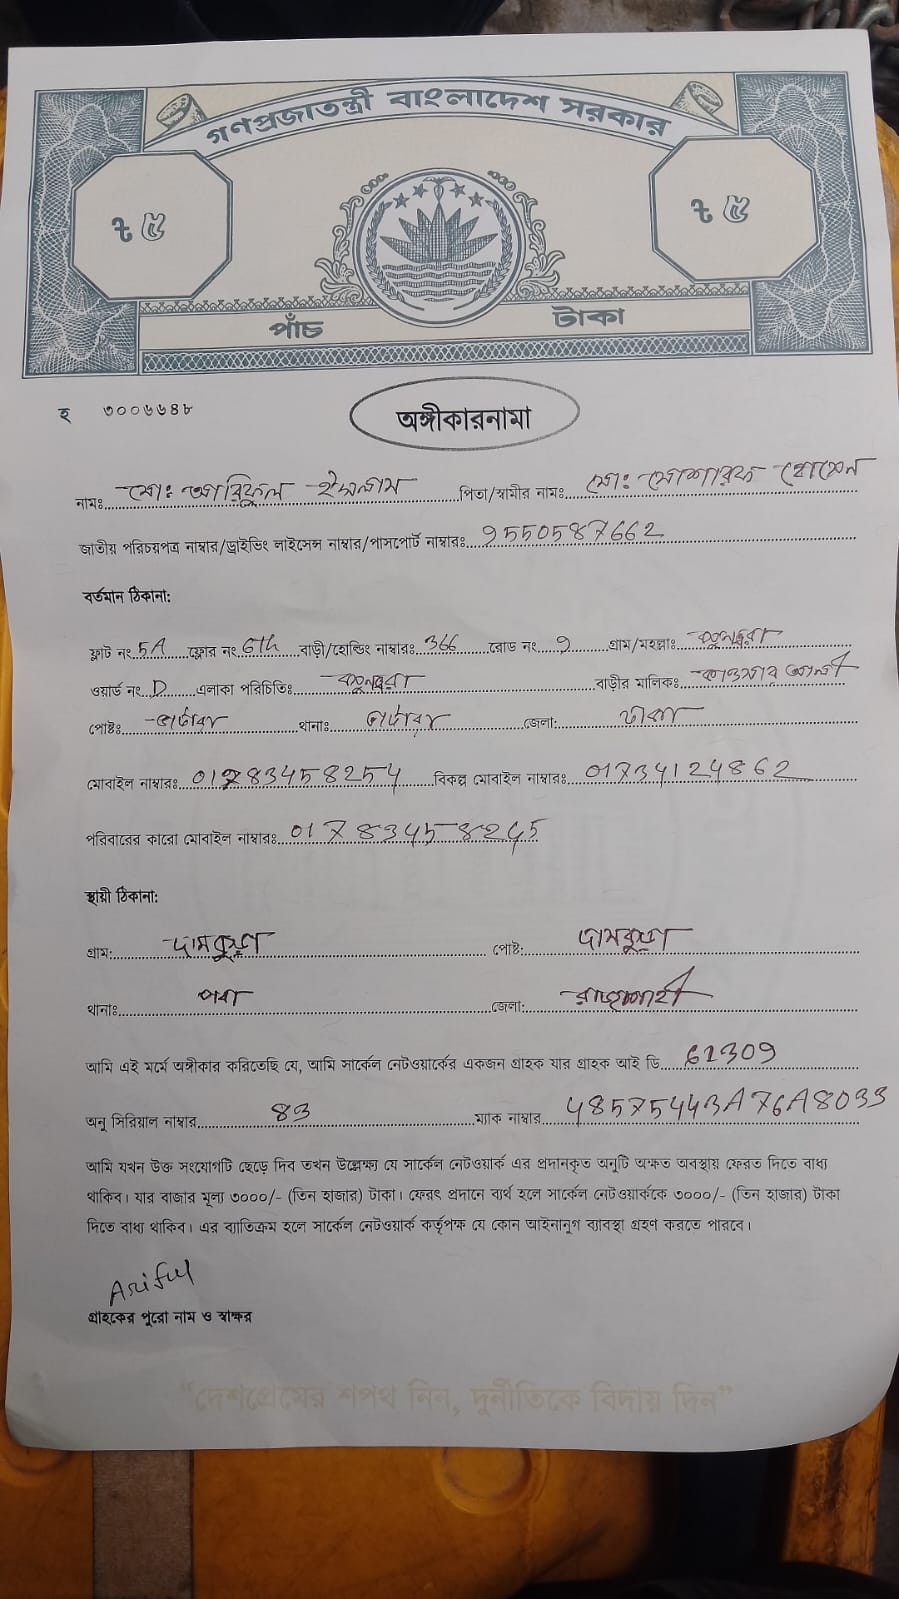 গণপ্রজাতন্ত্রী বাংলাদেশ সরকার
৳ ৫ ৳ ৫
পাঁচ টাকা
হ ৩০০৬৬৪৮
অঙ্গীকারনামা
নামঃ মোঃ আরিফুল ইসলাম পিতা/স্বামীর নামঃ মোঃ মোশারফ হোসেন
জাতীয় পরিচয়পত্র নাম্বার/ড্রাইভিং লাইসেন্স নাম্বার/পাসপোর্ট নাম্বারঃ 9550587662
বর্তমান ঠিকানা:
ফ্লাট নং 5A ফ্লোর নং 6th বাড়ী/হোল্ডিং নাম্বারঃ 366 রোড নং 9 গ্রাম/মহল্লাঃ
ওয়ার্ড নং D এলাকা পরিচিতিঃ বাড়ীর মালিকঃ
পোষ্টঃ ভাটারা থানাঃ ভাটারা জেলা: ঢাকা
মোবাইল নাম্বারঃ 01783458254 বিকল্প মোবাইল নাম্বারঃ 01734124862
পরিবারের কারো মোবাইল নাম্বারঃ 01783458245
স্থায়ী ঠিকানা:
গ্রাম: দামকুড়া পোষ্ট: দামকুড়া
থানাঃ পবা জেলা: রাজশাহী
আমি এই মর্মে অঙ্গীকার করিতেছি যে, আমি সার্কেল নেটওয়ার্কের একজন গ্রাহক যার গ্রাহক আই ডি 62309
অনু সিরিয়াল নাম্বার 83 ম্যাক নাম্বার 48575443A76A8033
আমি যখন উক্ত সংযোগটি ছেড়ে দিব তখন উল্লেক্ষ্য যে সার্কেল নেটওয়ার্ক এর প্রদানকৃত অনুটি অক্ষত অবস্থায় ফেরত দিতে বাধ্য
থাকিব। যার বাজার মূল্য ৩০০০/- (তিন হাজার) টাকা। ফেরৎ প্রদানে ব্যর্থ হলে সার্কেল নেটওয়ার্ককে ৩০০০/- (তিন হাজার) টাকা
দিতে বাধ্য থাকিব। এর ব্যাতিক্রম হলে সার্কেল নেটওয়ার্ক কর্তৃপক্ষ যে কোন আইনানুগ ব্যাবস্থা গ্রহণ করতে পারবে।
Ariful
গ্রাহকের পুরো নাম ও স্বাক্ষর
“দেশপ্রেমের শপথ নিন, দুর্নীতিকে বিদায় দিন”